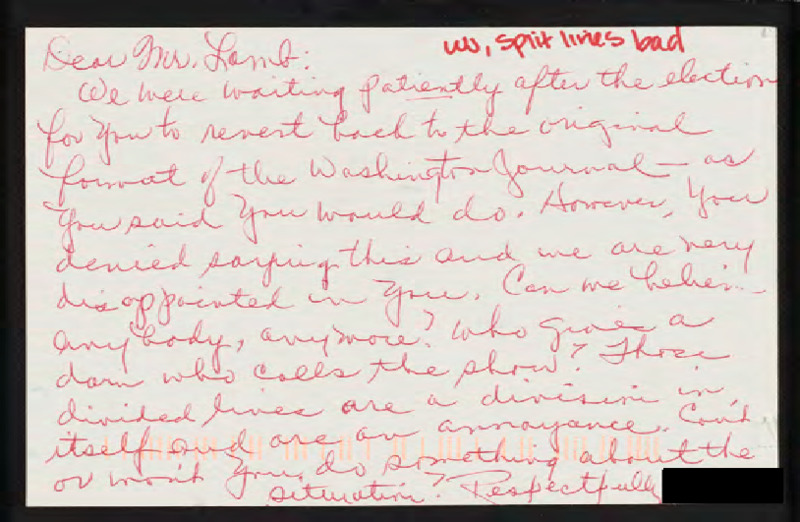 WJ, split lines bad
Dear Mr. Lamb:
We were waiting patiently after the election
for you to revert back to the original
format of the Washington Journal — as
you said you would do. However, you
denied saying this and we are very
disappointed in you. Can we believe
anybody, anymore? Who gives a
darn who calls the show? Those
divided lines are a division in
itself and are an annoyance. Can't
or won't you do something about the
situation? Respectfully